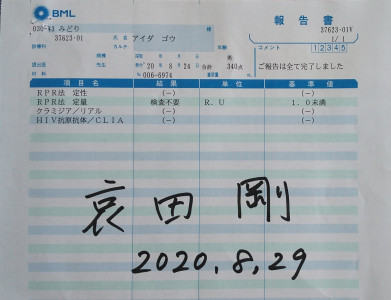 BML
報告書
030-43 みどり
37623-01
カルテ
氏名
アイダ ゴウ
37623-01V
1/ 1
診療科
病棟
年齢
男
コメント 1 2 3 4 5
提出医
先生
20年 8月24日 合計 340点
ご報告は全て完了しました
材料
No. 006-6974
項目名 結果 単位 基準値
RPR法 定性 (-) (-)
RPR法 定量 検査不要 R.U 1.0未満
クラミジア/リアル (-) (-)
HIV抗原抗体/CLIA (-) (-)
哀田 剛
2020.8.29